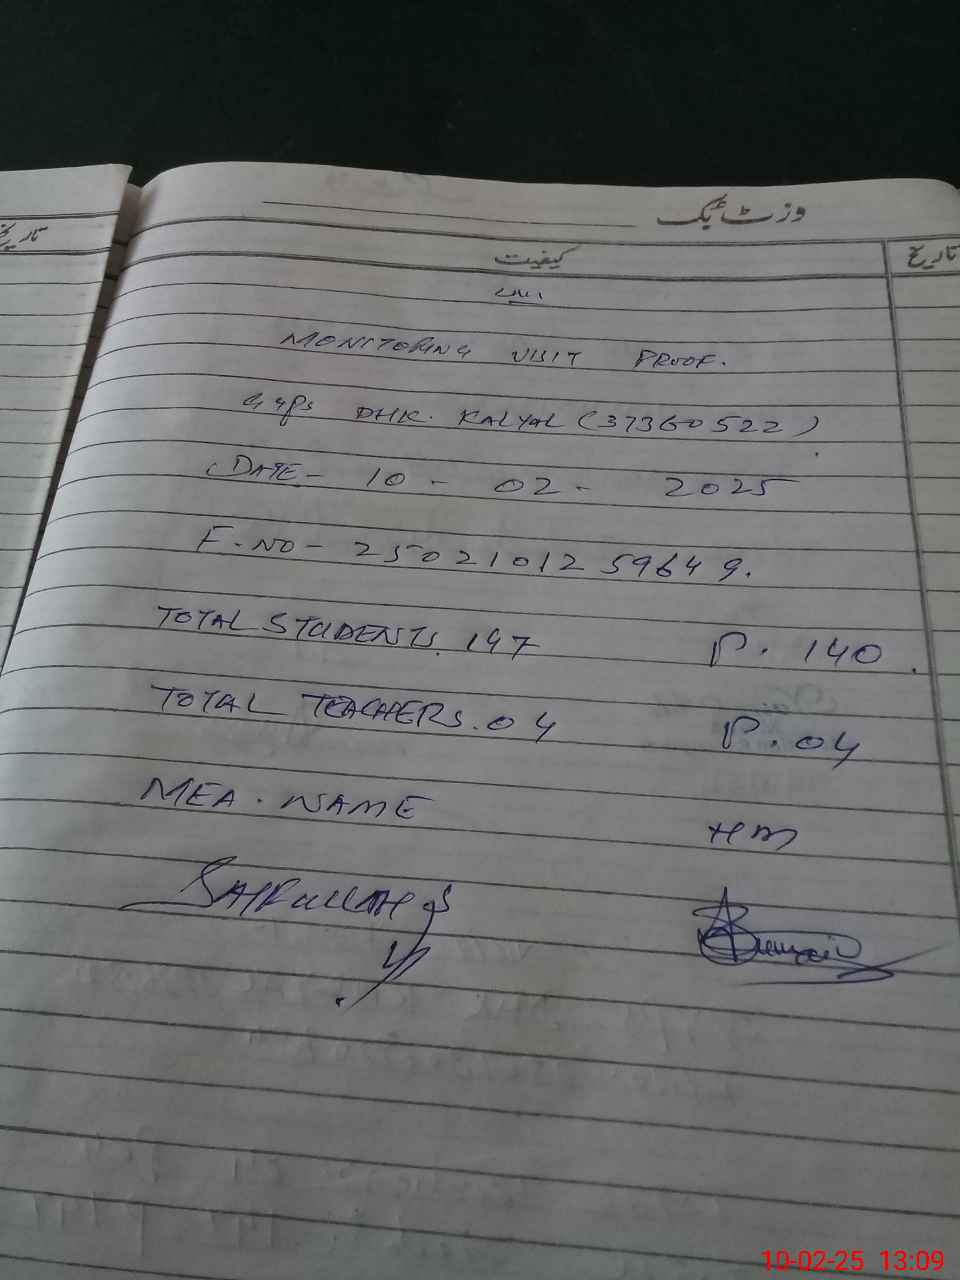 وزٹ بک
تاریخ
کیفیت
تاریخ
MONITORING VISIT PROOF.
GGPS DHK. KALYAL (37360522)
DATE - 10 - 02 - 2025
F.NO - 2502101259649.
TOTAL STUDENTS. 147 P. 140
TOTAL TEACHERS. 04 P. 04
MEA. NAME HM
SAIFULLAH
10-02-25 13:09